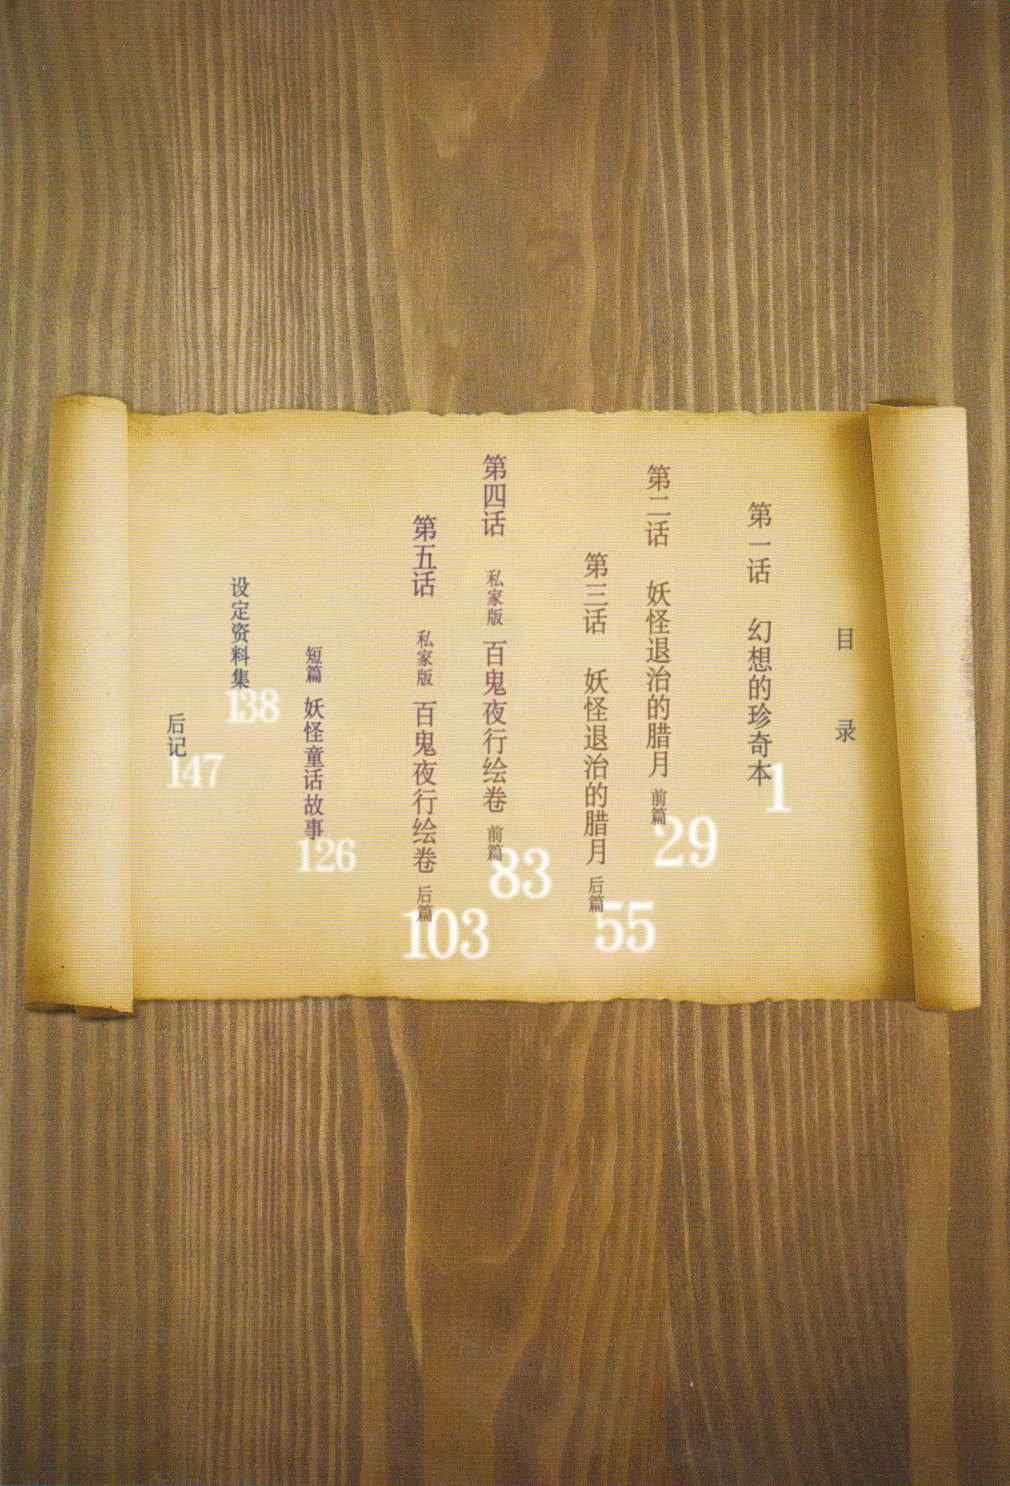 目 录
第一话 幻想的珍奇本 1
第二话 妖怪退治的腊月 前篇 29
第三话 妖怪退治的腊月 后篇 55
第四话 私家版 百鬼夜行绘卷 前篇 83
第五话 私家版 百鬼夜行绘卷 后篇 103
短篇 妖怪童话故事 126
设定资料集 138
后记 147